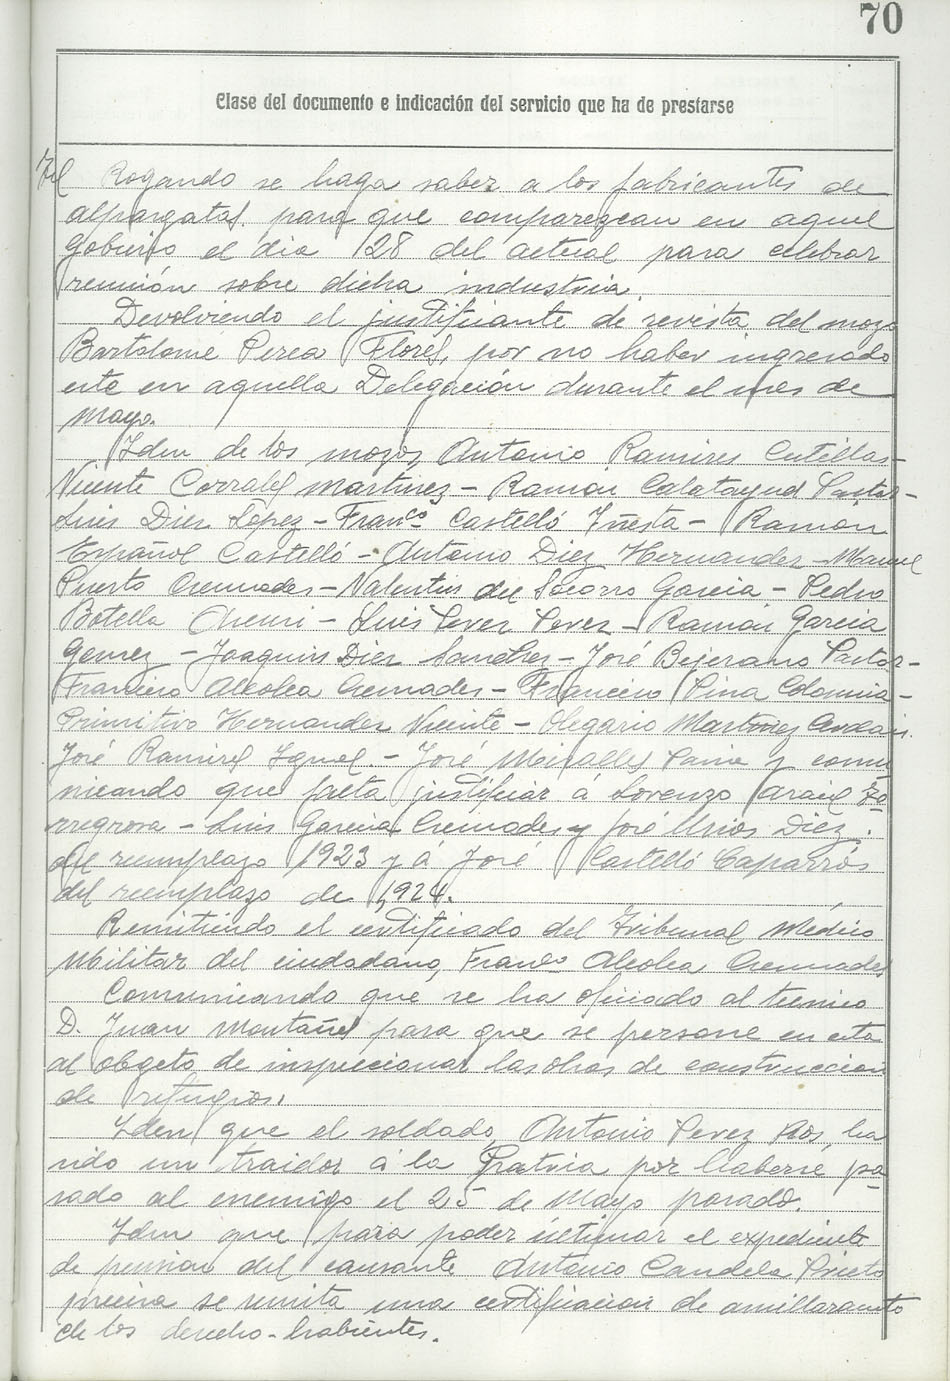 70
Clase del documento e indicación del servicio que ha de prestarse
Rogando se haga saber a los fabricantes de
alpargatas para que comparezcan en aquel
Gobierno el dia 28 del actual para celebrar
reunión sobre dicha industria.
Devolviendo el justificante de revista del mozo
Bartolome Perea Flores, por no haber ingresado
este en aquella Delegación durante el mes de
Mayo.
Idem de los mozos Antonio Ramires Cutillas-
Vicente Corrales Martinez - Ramon Calatayud Pastor-
Luis Diez López - Franco Castelló Iñesta - Ramón
Español Castelló - Antonio Diez Hernandez - Manuel
Puerto Cremades - Valentin del Socorro Garcia - Pedro
Botella - Luis Perez Perez - Ramón Garcia
Gomez - Joaquin Diez Sanchez - José Bejerano Pastor-
Francisco Alcolea Cremades - Francisco Pina Colomina-
Primitivo Hernandez Vicente - Olegario Martinez
José Ramires - José Miralles y comu
nicando que falta justificar á Lorenzo
rregrosa - Luis Garcia Cremades y José Urios Diez.
del reemplazo 1923 y á José Castelló Caparrós
del reemplazo de 1,924.
Remitiendo el certificado del Tribunal Médico
Militar del ciudadano, Franco Alcolea Cremades
Comunicando que se ha oficiado al tecnico
D. Juan Montañes para que se persone en esta
al obgeto de inspeccionar las obras de construccion
de refugios.
Idem que el soldado, Antonio Perez Ros, ha
sido un traidor á la Pratria por haberse pa
sado al enemigo el 25 de Mayo pasado.
Idem que para poder últimar el expediente
de pension del causante Antonio Candela Prieto
precisa se remita una certificacion de amillaramto
de los derecho-habientes.